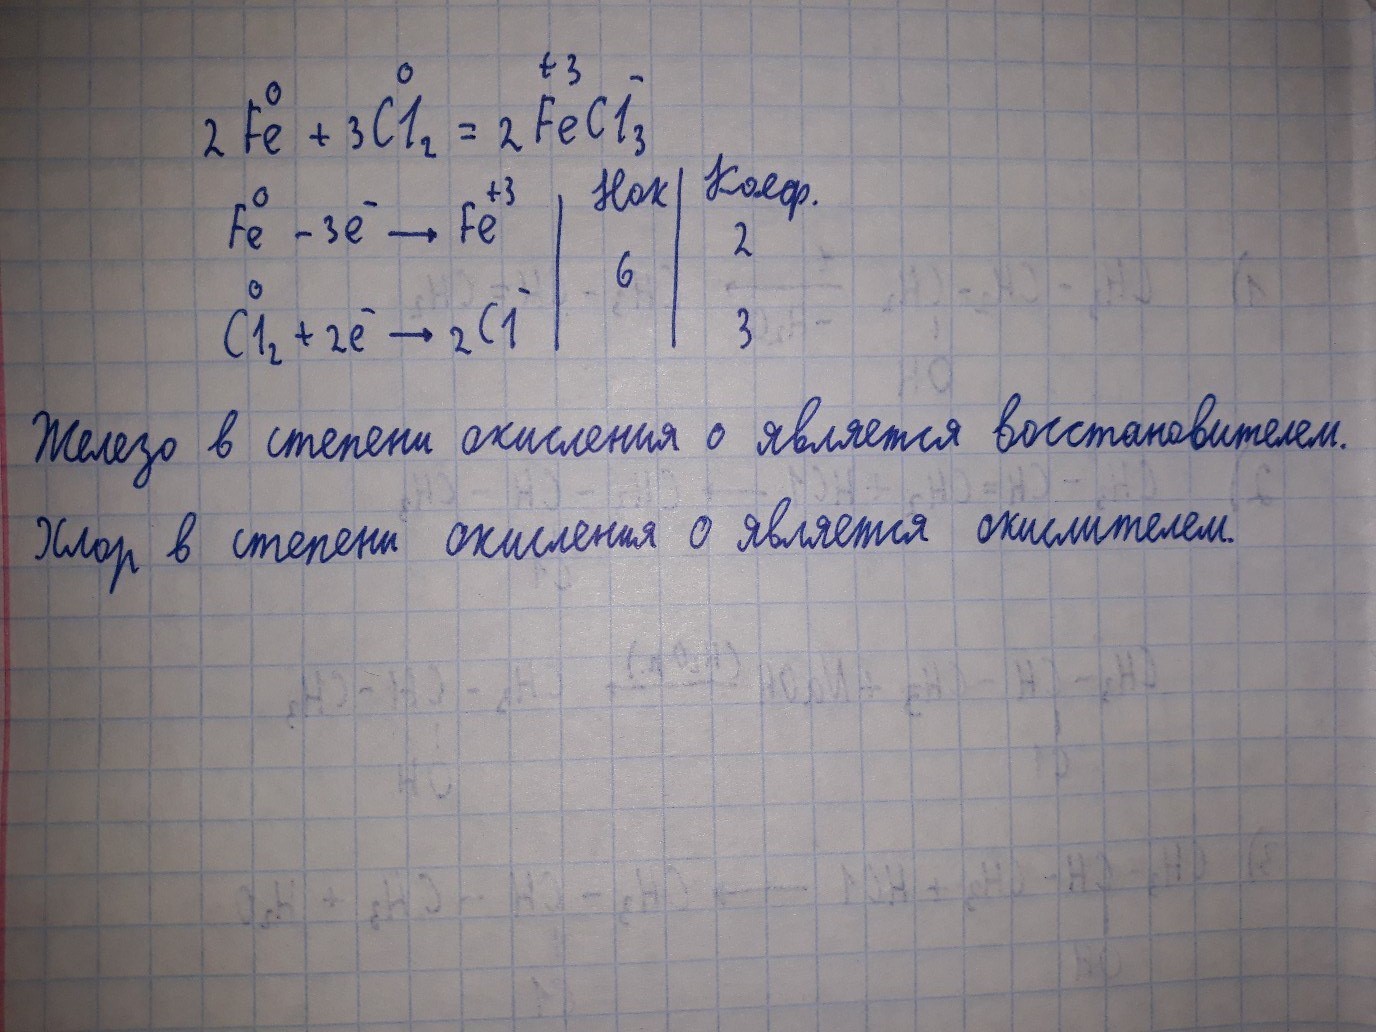 2Fe⁰ + 3Cl₂⁰ = 2Fe⁺³Cl₃⁻
Fe⁰ - 3e⁻ → Fe⁺³ | Нок | Коэф.
6 2
Cl₂⁰ + 2e⁻ → 2Cl⁻ 3
Железо в степени окисления 0 является восстановителем.
Хлор в степени окисления 0 является окислителем.